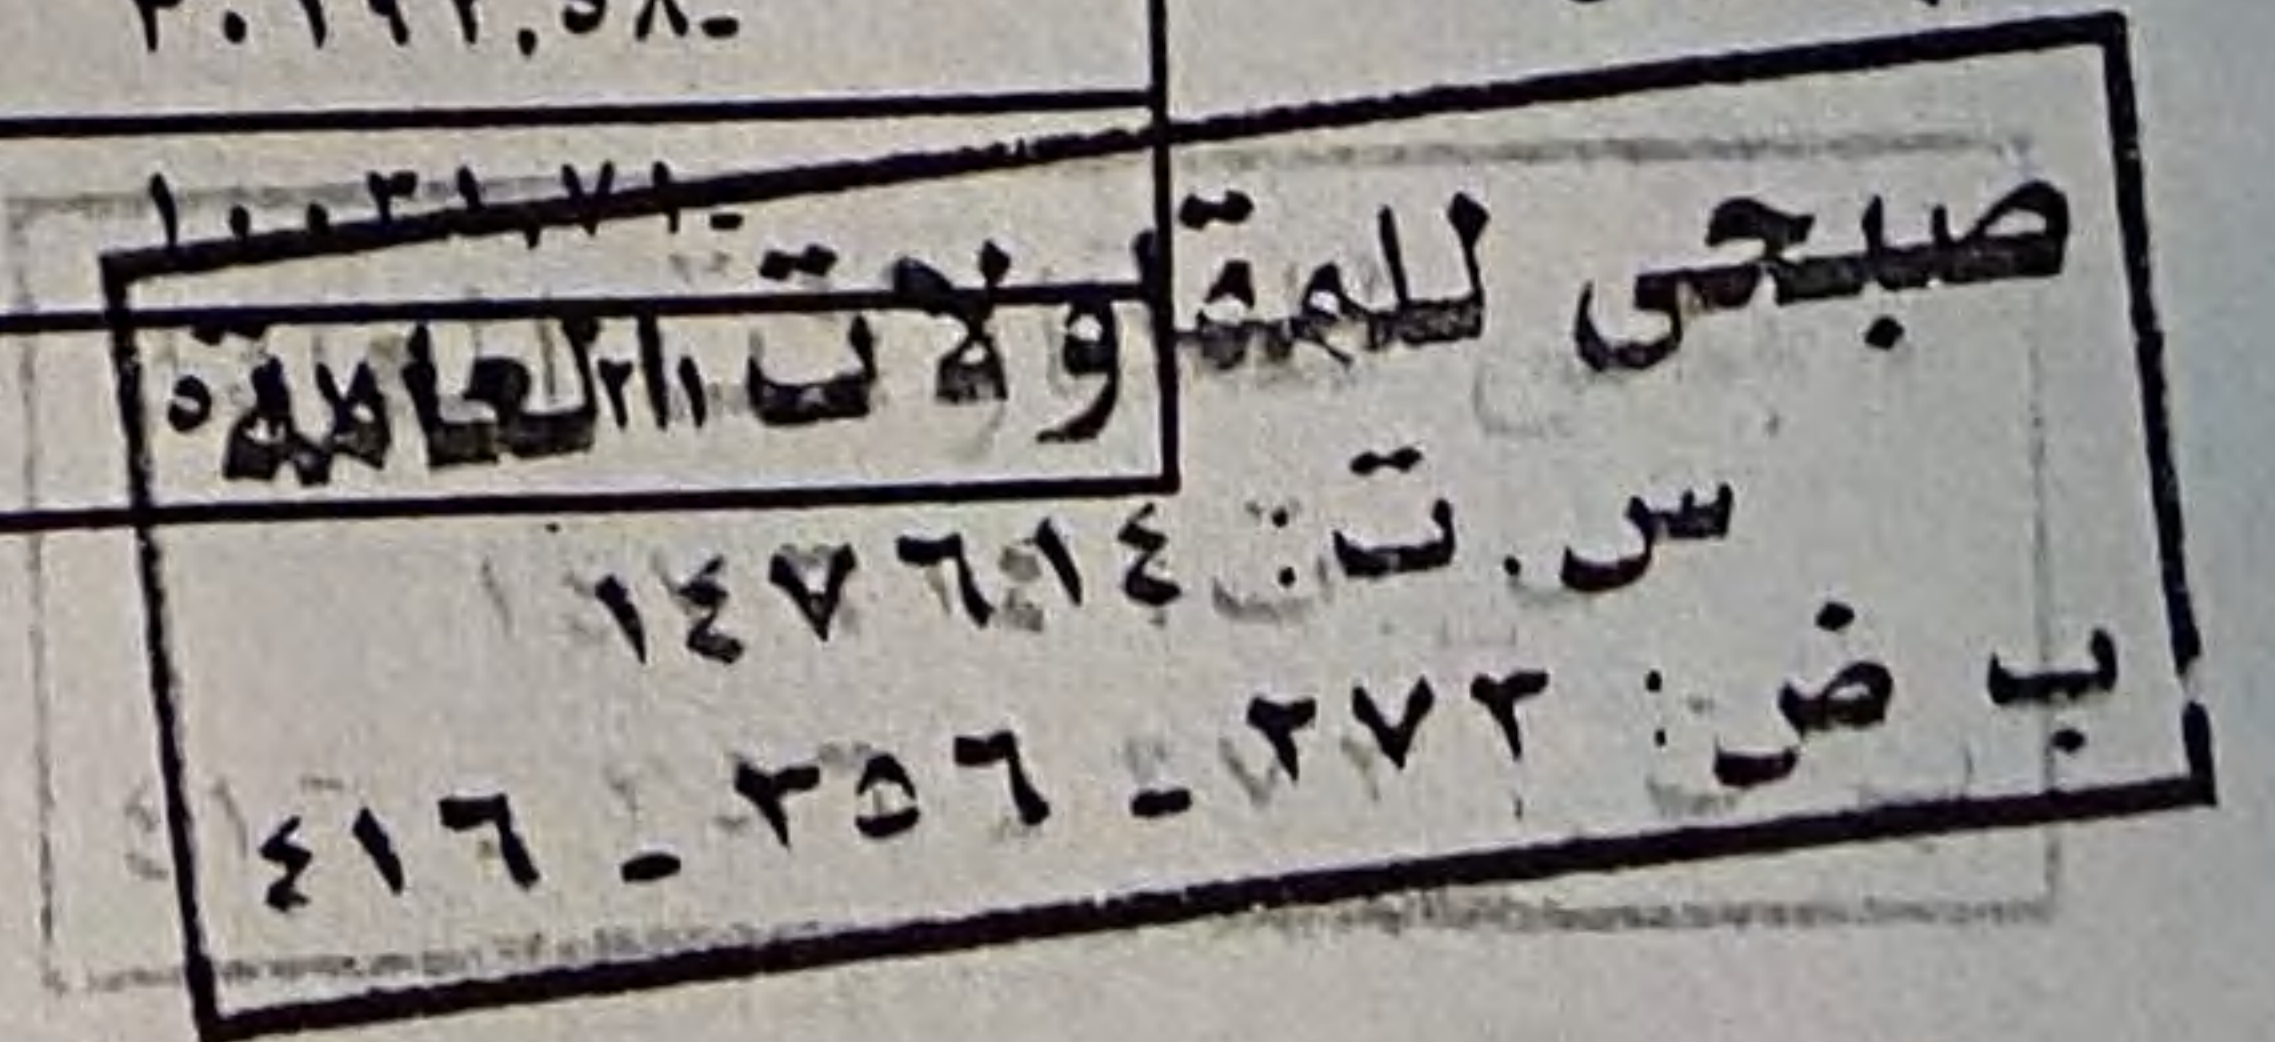 ١٠٠٣١,٧١-
صبحى للمقاولات العامة
س.ت: ١٤٧٦١٤
ب ض: ٢٧٢ - ٢٥٦ - ٤١٦